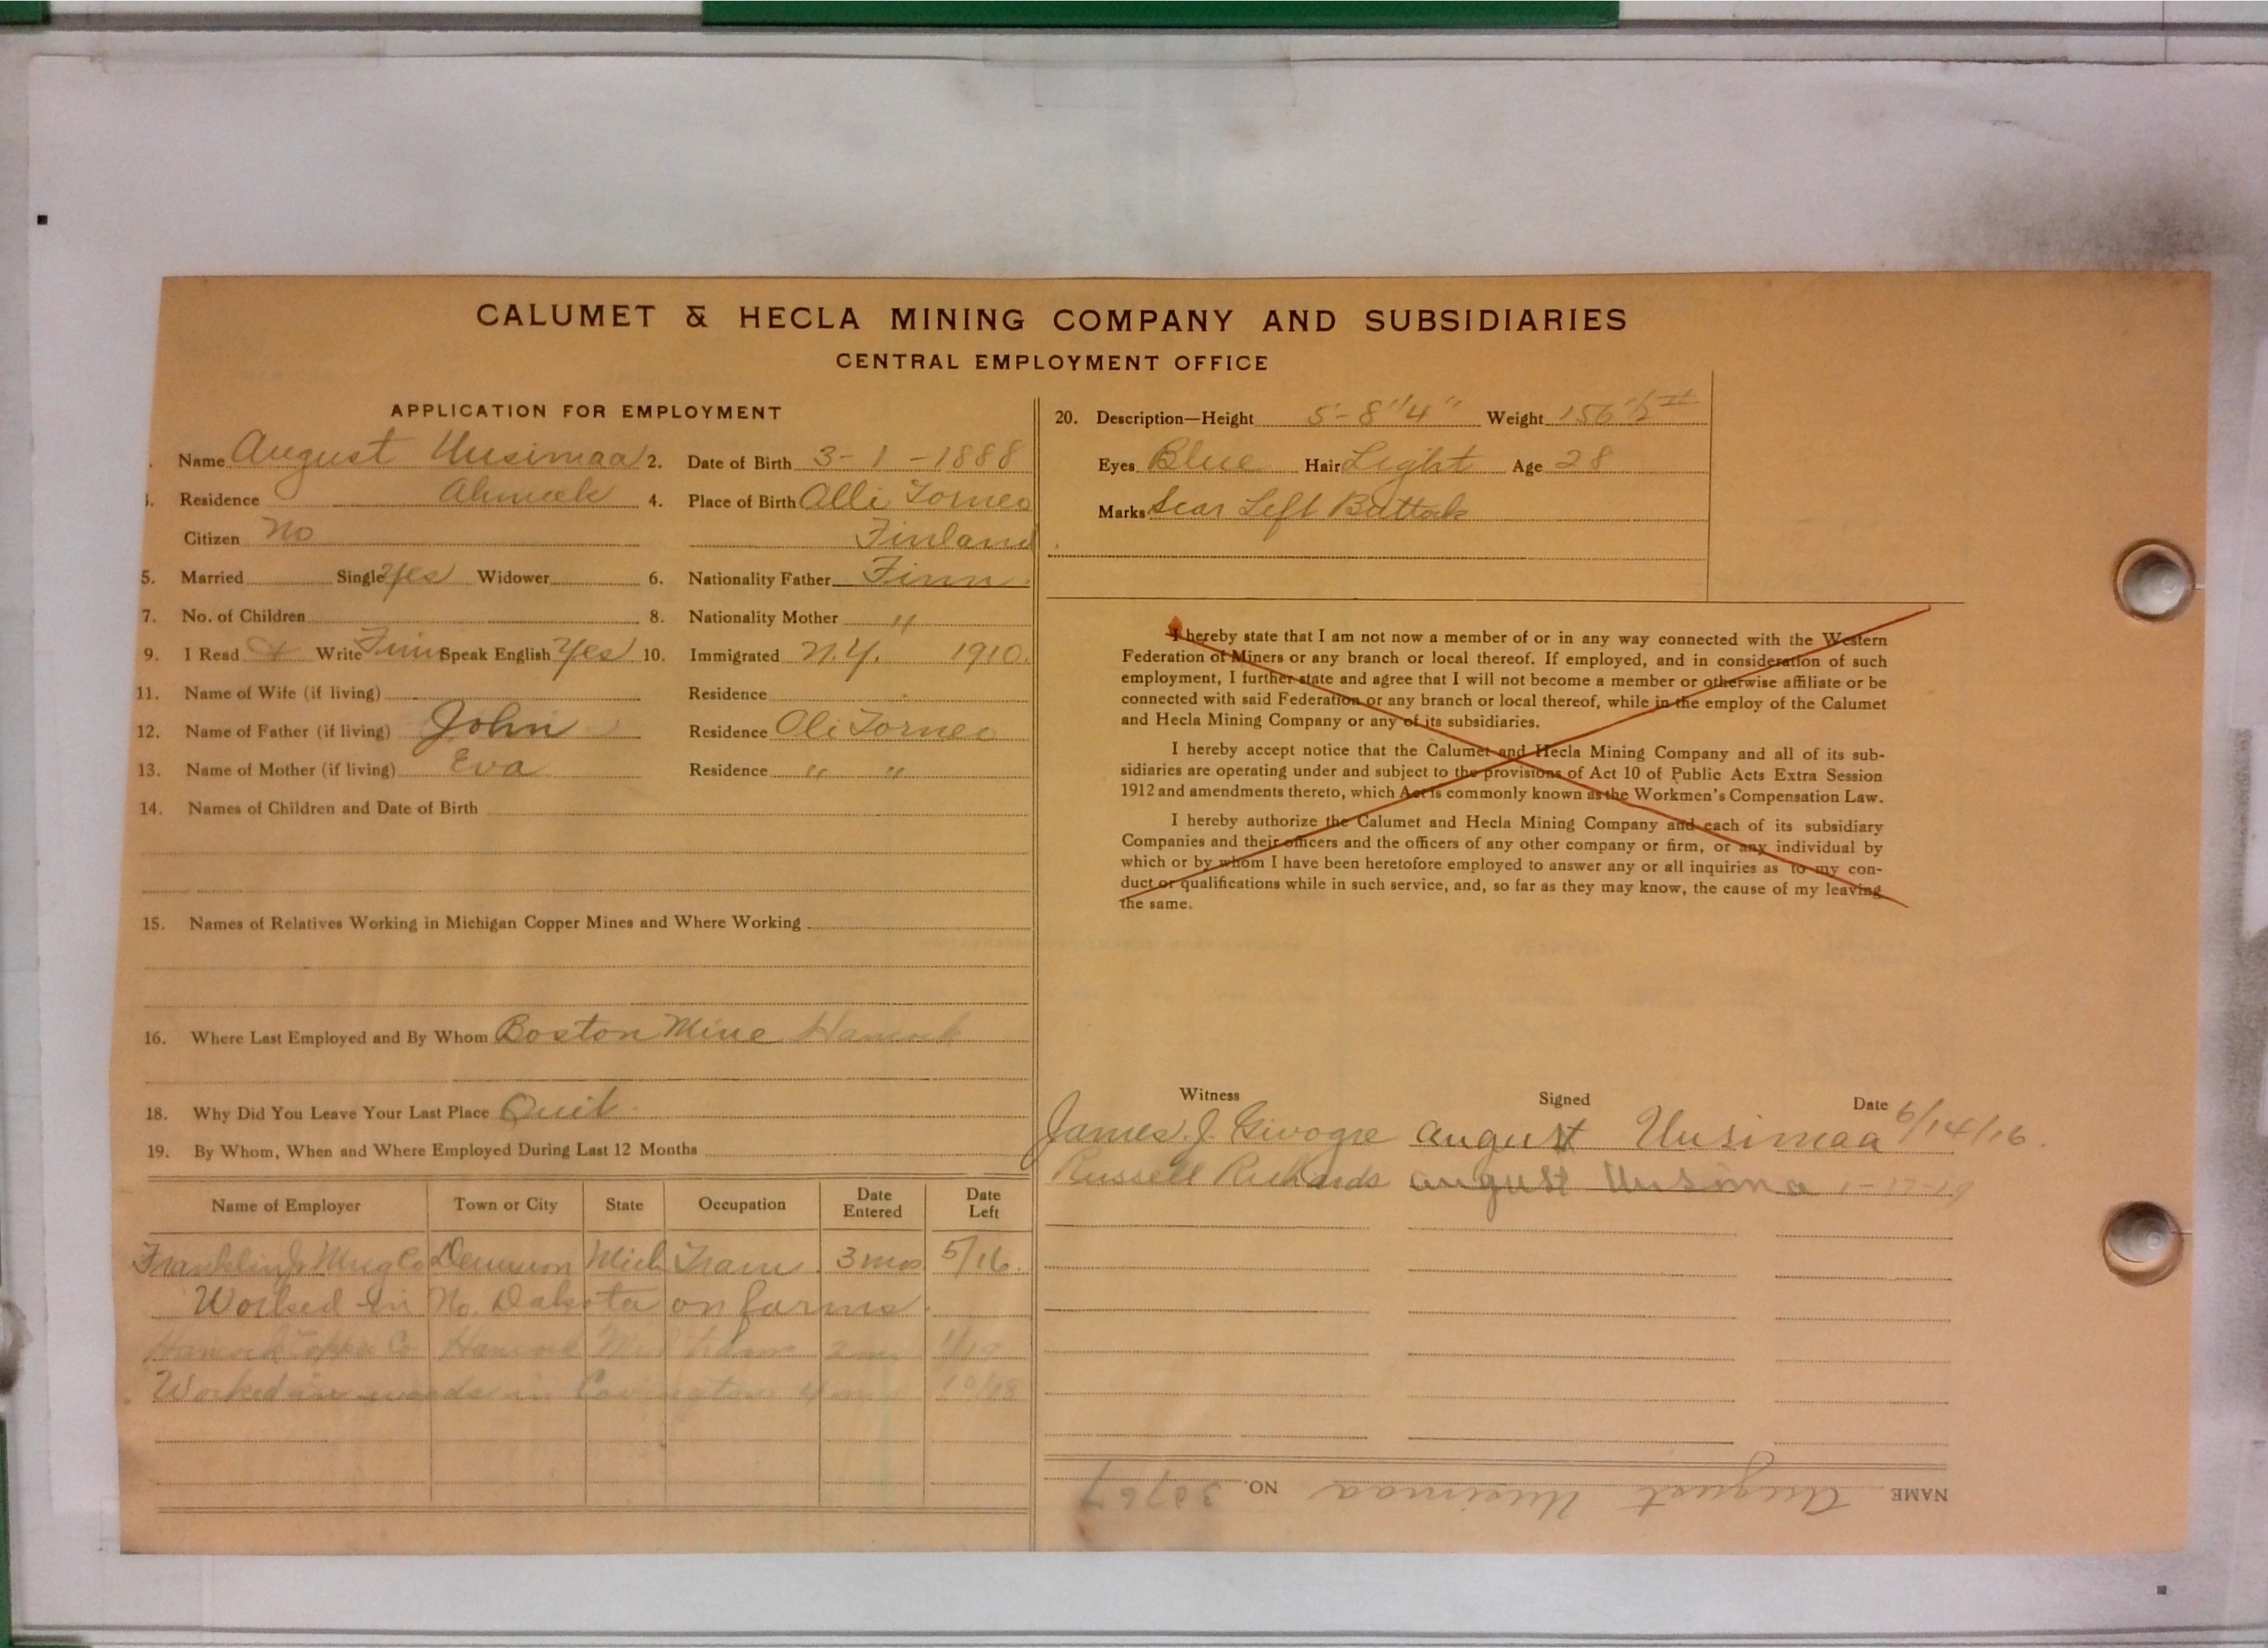 CALUMET & HECLA MINING COMPANY AND SUBSIDIARIES
CENTRAL EMPLOYMENT OFFICE
APPLICATION FOR EMPLOYMENT
Name August Uusimaa 2. Date of Birth 3-1-1888
Residence Ahmeek 4. Place of Birth Alli Torneo
Citizen No Finland
5. Married Single Yes Widower 6. Nationality Father Finn
7. No. of Children 8. Nationality Mother "
9. I Read & Write Finn Speak English Yes 10. Immigrated N.Y. 1910.
11. Name of Wife (if living) Residence
12. Name of Father (if living) John Residence Oli Torneo
13. Name of Mother (if living) Eva Residence " "
14. Names of Children and Date of Birth
15. Names of Relatives Working in Michigan Copper Mines and Where Working
16. Where Last Employed and By Whom Boston Mine Hancock
18. Why Did You Leave Your Last Place Quit
19. By Whom, When and Where Employed During Last 12 Months
Name of Employer Town or City State Occupation Date Entered Date Left
Franklin Jr Mich Tram 3 mos 5/16.
Worked in No. Dakota on farms.
Hancock Copper Co Hancock Mich tram
Worked in woods in Covington 10/18
20. Description—Height 5-8 1/4" Weight 156 1/2
Eyes Blue Hair Light Age 28
Marks Scar Left Buttock
I hereby state that I am not now a member of or in any way connected with the Western
Federation of Miners or any branch or local thereof. If employed, and in consideration of such
employment, I further state and agree that I will not become a member or otherwise affiliate or be
connected with said Federation or any branch or local thereof, while in the employ of the Calumet
and Hecla Mining Company or any of its subsidiaries.
I hereby accept notice that the Calumet and Hecla Mining Company and all of its sub-
sidiaries are operating under and subject to the provisions of Act 10 of Public Acts Extra Session
1912 and amendments thereto, which Act is commonly known as the Workmen's Compensation Law.
I hereby authorize the Calumet and Hecla Mining Company and each of its subsidiary
Companies and their officers and the officers of any other company or firm, or any individual by
which or by whom I have been heretofore employed to answer any or all inquiries as to my con-
duct or qualifications while in such service, and, so far as they may know, the cause of my leaving
the same.
Witness Signed Date
James J. August Uusimaa 6/14/16.
Russell Richards August Uusima 1-17-19
NAME August Uusimaa NO. 30767